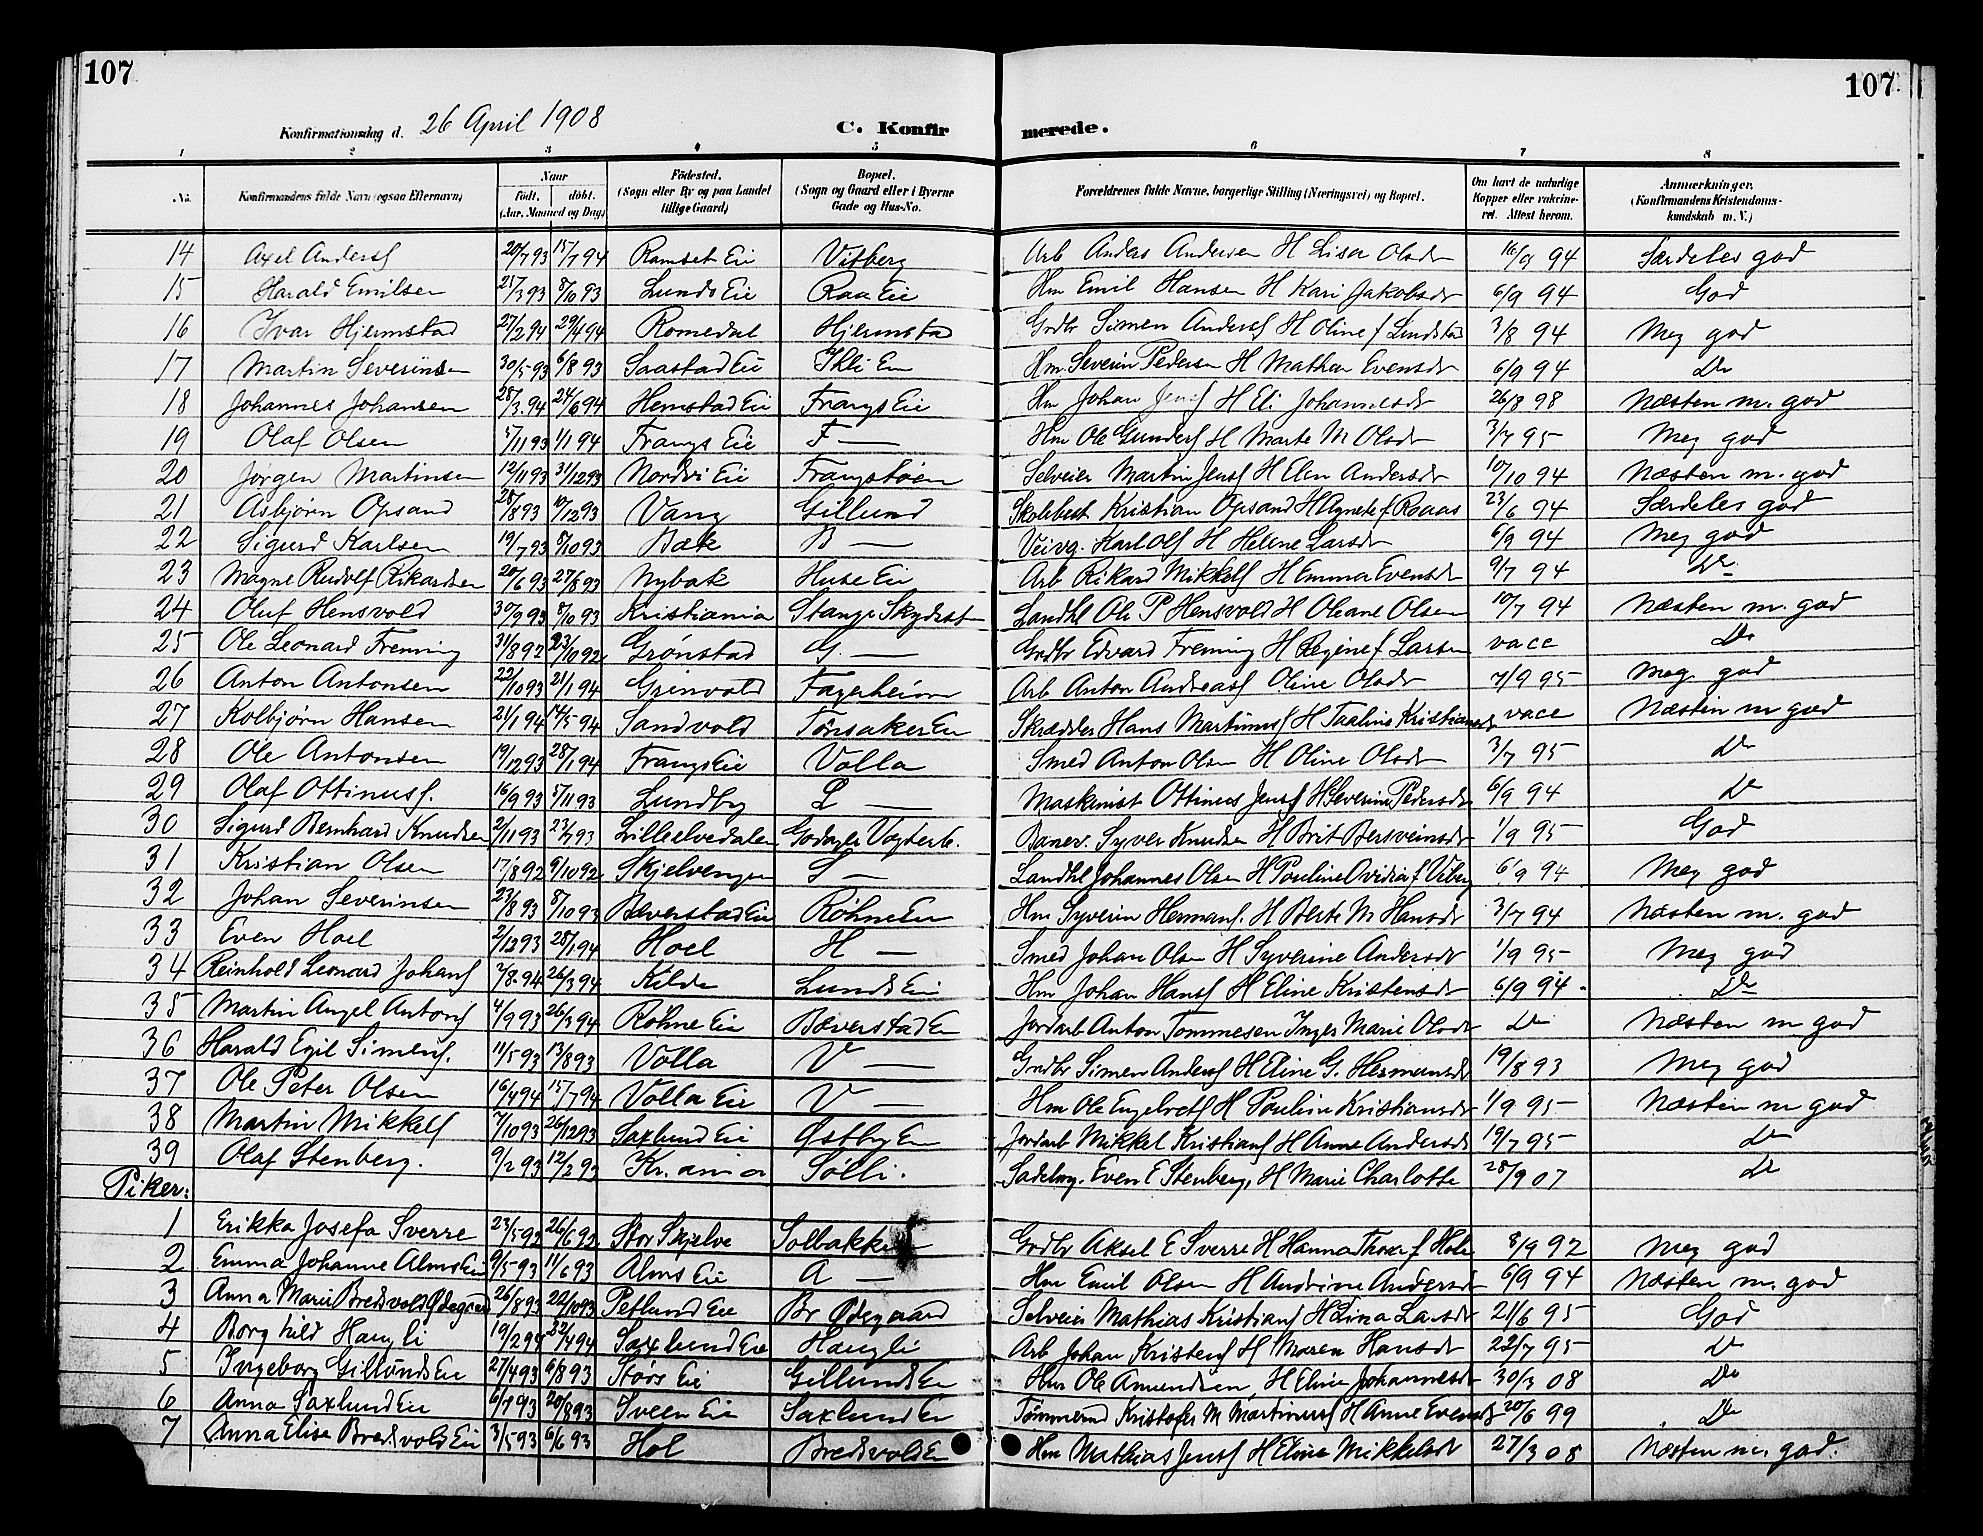 107
107
Konfirmationsdag d. 26 April 1908
C. Konfirmerede.
1 2 3 4 5 6 7 8
No. Konfirmandens fulde Navn (ogsaa Efternavn) Naar født, døbt. (Aar, Maaned og Dag) Fødested. (Sogn eller By og paa Landet tillige Gaard) Bopæl. (Sogn og Gaard eller i Byerne Gade og Hus-No. Forældrenes fulde Navne, borgerlige Stilling (Næringsvei) og Bopæl. Om havt de naturlige Kopper eller vakcineret. Attest herom. Anmærkninger. (Konfirmandens Kristendomskundskab m. V.)
14 Axel Andersf 20/7 93 15/7 94 Ramset Eie Vitberg Arb Anders Andersen H Lisa Olsdr 94 Særdeles god
15 Harald Emilsen 25/3 93 8/10 93 Lunds Eie Raa Eie Hm Emil Hansen H Kari Jakobsdr 6/9 94 God
16 Ivar Hjermstad 27/2 94 29/4 94 Romedal Hjermstad Grdbr Simen Andersf H Oline f Lundstad 3/8 94 Meg god
17 Martin Severinsen 30/5 93 6/8 93 Saastad Eie Ihli Eie Hm Severin Pedersen H Mathea Evensdr 6/9 94 Do
18 Johannes Johansen 28/3 94 24/6 94 Hemstad Eie Frangs Eie Hm Johan Jensf H Eli Johannesdr 26/8 98 Næsten m. god
19 Olaf Olsen 5/11 93 1/1 94 Frangs Eie F — Hm Ole Gundersf H Marte M Olsdr 3/7 95 Meg god
20 Jørgen Martinsen 12/11 93 31/12 93 Nordvi Eie Frangstøen Selveier Martin Jensf H Elen Andersdr 10/10 94 Næsten m. god
21 Asbjørn Opsand 28/8 93 10/12 93 Vang Gillund Skolebest Kristian Opsand H Agnete f Raaas 23/6 94 Særdeles god
22 Sigurd Karlsen 19/7 93 8/10 93 Bæk B — Veivg. Karl Olsf H Helene Larsdr 6/9 94 Meg god
23 Magne Rudolf Rikardsen 20/6 93 27/8 93 Nybak Huse Eie Arb Rikard Mikkelsf H Emma Evensdr 9/7 94 Do
24 Oluf Hensvold 30/9 93 8/10 93 Kristiania Stange Skydsst Landhl Ole P Hensvold H Oleane Olsen 10/7 94 Næsten m. god
25 Ole Leonard Frenning 31/8 92 23/10 92 Grønstad G. — Grdbr Edvard Frenning H Regine f Larsen vacc Do
26 Anton Antonsen 22/10 93 21/1 94 Grinvold Fagerheim Arb Anton Andreasf Oline Olsdr 7/9 95 Meg. god
27 Kolbjørn Hansen 21/1 94 14/5 94 Sandvold Tønsaker Eie Skrædder Hans Martinusf H Taaline Kristiansdr vacc Næsten m god
28 Ole Antonsen 19/12 93 28/1 94 Frangs Eie Volla Smed Anton Olsen H Oline Olsdr 3/7 95 Do
29 Olaf Ottinusf. 16/9 93 5/11 93 Lundby L — Maskinist Ottinus Jensf H Severine Pedersdr 6/9 94 Do
30 Sigurd Bernhard Knudsen 2/11 93 23/7 93 Lilleelvedalen Godager Vogterb. Banev. Syver Knudsen H Brit Bersveinsdr 1/9 95 God
31 Kristian Olsen 17/8 92 9/10 92 Skjelvengen S — Landhl Johannes Olsen H Pouline Ovidia f Viberg 6/9 94 Meg god
32 Johan Severinsen 23/8 93 8/10 93 Bæverstad Eie Røhne Eie Hm Syverin Hermansf. H Berte M Hansdr 3/7 94 Næsten m. god
33 Even Hoel 2/12 93 28/1 94 Hoel H — Smed Johan Olsen H Syverine Andersdr 1/9 95 Meg god
34 Reinhold Leonard Johansf 7/8 94 26/3 94 Kilde Lunds Eie Hm Johan Hansf H Eline Kristensdr 6/9 94 Do
35 Martin Angel Antonsf 4/9 93 26/3 94 Røhne Eie Bæverstad Eie Jordarb Anton Tommesen Inger Marie Olsdr Do Næsten m god
36 Harald Egil Simensf. 11/5 93 13/8 93 Volla V — Grdbr Simen Andersf H Eline G. Hermansdr 19/8 93 Meg god
37 Ole Peter Olsen 16/4 94 15/7 94 Volla Eie V — Hm Ole Engebretsf H Pouline Kristiansdr 1/9 95 Næsten m god
38 Martin Mikkelsf 7/10 93 26/12 93 Saxlund Eie Østby Eie Jordarb Mikkel Kristiansf H Anne Andersdr 19/7 95 Do
39 Olaf Stenberg. 9/2 93 12/2 93 Kr.ania Sølli. Sadelmg. Even E Stenberg, H Marie Charlotte 28/9 07 Do
Piker:
1 Erikka Josefa Sverre 23/5 92 26/6 92 Stor Skjelve Solbakken Grdbr Aksel E Sverre H Hanna Thora f Hole 8/9 92 Meg god
2 Emma Johanne Alms Eie 9/5 93 11/6 93 Alms Eie A — Hm Emil Olsen H Andrine Andersdr 6/9 94 Næsten m. god
3 Anna Marie Bredsvold Ødegaard 26/8 93 22/10 93 Peflund Eie Br Ødegaard Selveier Mathias Kristiansf H Lina Larsdr 21/6 95 God
4 Borghild Haugli 19/2 94 22/4 94 Saxlund Eie Haugli Arb Johan Kristensf H Maren Hansdr 22/7 95 Do
5 Ingeborg Gillunds Eie 27/4 93 6/8 93 Størs Eie Gillunds Eie Hm Ole Amundsen, H Eline Johannesdr 30/3 08 Do
6 Anna Saxlund Eie 6/7 93 20/8 93 Sveen Eie Saxlund Eie Tømmermd Kristofer M Martinusf H Anne Evensdr 20/6 99 Do
7 Anna Elise Bredsvold Eie 3/5 93 6/6 93 Hol Bredsvold Eie Hm Mathias Jensf H Eline Mikkelsdr 27/3 08 Næsten m. god.